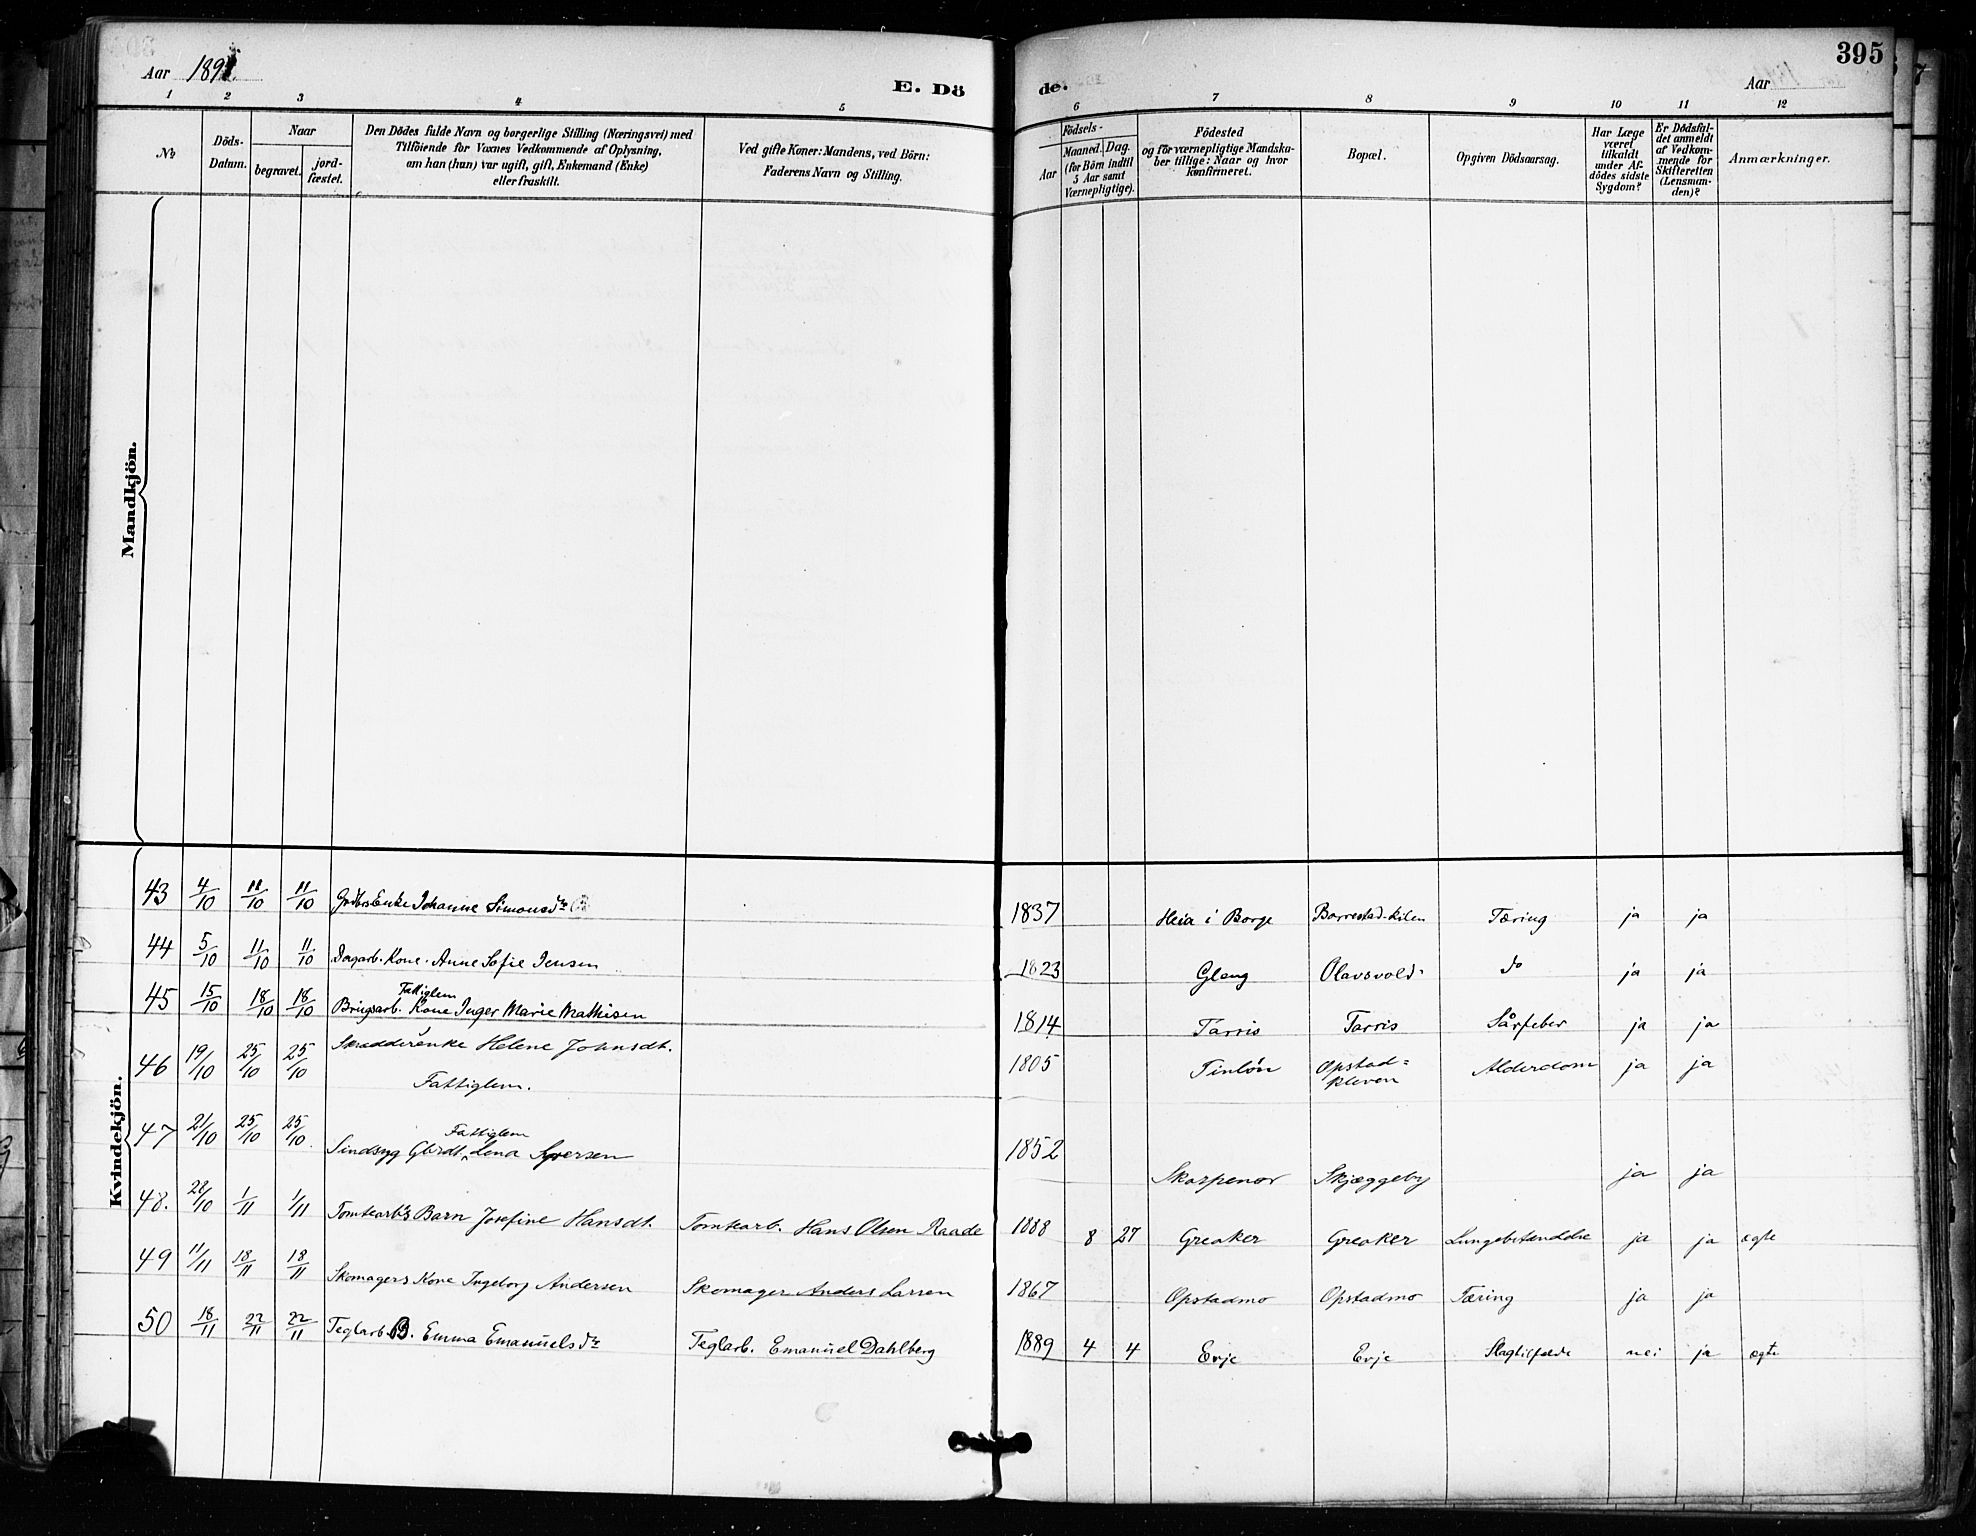 395
Aar 189
E. Dö
de.
Aar
1 2 3 4 5 6 7 8 9 10 11 12
No
Döds-
Datum.
Naar
begravet.
jord-
fæstet.
Den Dödes fulde Navn og borgerlige Stilling (Næringsvei) med
Tilföiende for Voxnes Vedkommende af Oplysning,
om han (hun) var ugift, gift, Enkemand (Enke)
eller fraskilt.
Ved gifte Koner: Mandens, ved Börn:
Faderens Navn og Stilling.
Födsels-
Aar
Maaned.
Dag.
(for Börn indtil
5 Aar samt
Værnepligtige).
Födested
og för værnepligtige Mandska-
ber tillige: Naar og hvor
konfirmeret.
Bopæl.
Opgiven Dödsaarsag.
Har Læge
været
tilkaldt
under Af-
dödes sidste
Sygdom?
Er Dödsfal-
det anmeldt
af Vedkom-
mende for
Skifteretten
(Lensman-
den)?
Anmærkninger.
Mandkjön.
Kvindekjön.
43 4/10 11/10 11/10 Enke Johanne Simonsdtr 1837 Heia i Borge Borrestad-kilen Tæring ja ja
44 5/10 11/10 11/10 Dagarb. Kone. Anne Sofie Jensen 1823 Gleng Olavsvold do ja ja
Fattiglem
45 15/10 18/10 18/10 Brugsarb. Kone Inger Marie Mathisen 1814 Tarris Tarris Sårfeber ja ja
46 19/10 25/10 25/10 Skrædderenke Helene Johnsdt. 1805 Tinlön Opstad= Alderdom ja ja
Fattiglem. kleven
Fattiglem
47 21/10 25/10 25/10 Sindsyg Gbrdt. Lena Syversen 1852 Skarpenor Skjæggeby ja ja
48. 28/10 1/11 1/11 Tomtearb's Barn Josefine Hansdt. Tomtearb. Hans Olsen Raade 1888 8 27 Greaker Greaker Lungebetændelse ja ja ægte
49 11/11 18/11 18/11 Skomagers Kone Ingeborg Andersen Skomager Anders Larsen 1867 Opstadmo Opstadmo Tæring ja ja
50 18/11 22/11 22/11 Teglarb. B. Emma Emanuelsdtr Teglarb. Emanuel Dahlberg 1889 4 4 Evje Evje Slagtilfælde nei ja ægte